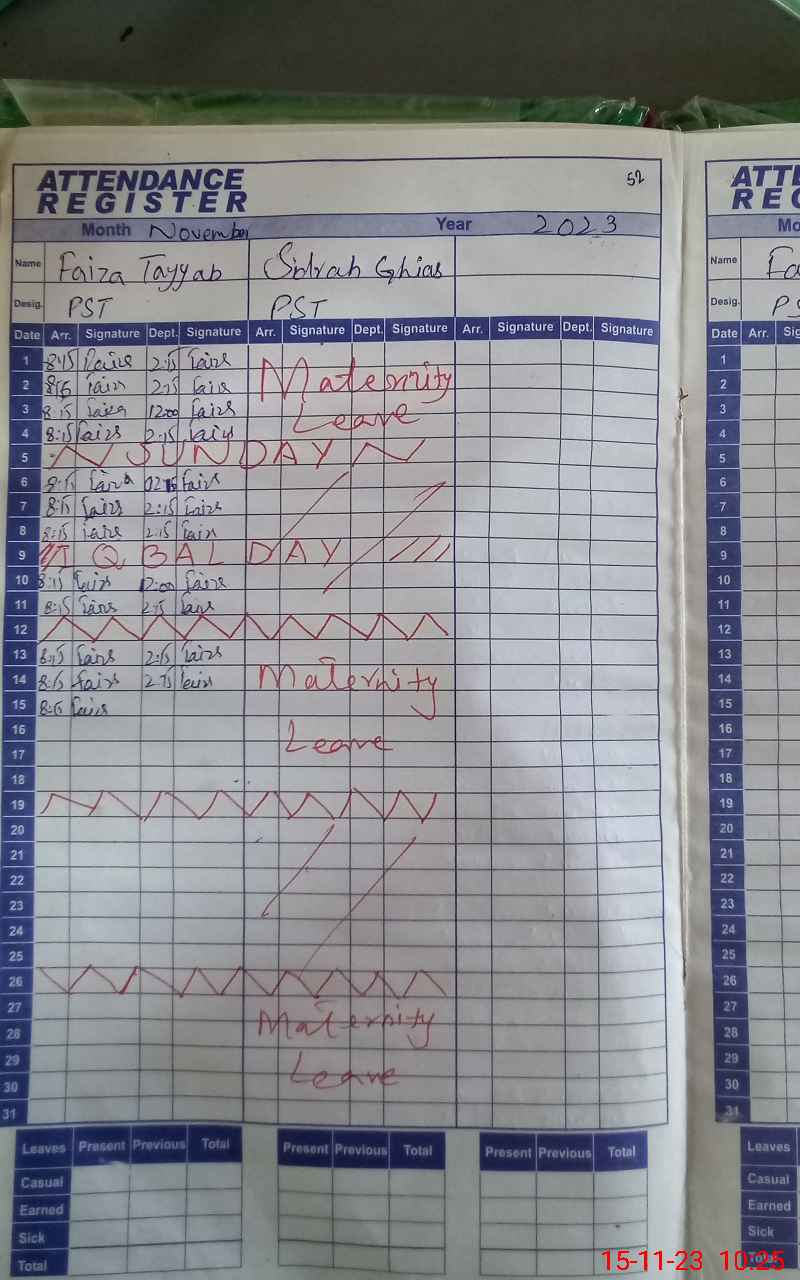 52
ATTENDANCE
REGISTER
Month November Year 2023
Name Faiza Tayyab Sidrah Ghias
Desig. PST PST
Date Arr. Signature Dept. Signature Arr. Signature Dept. Signature Arr. Signature Dept. Signature
1 8:15 2:15
2 8:15 2:15 Maternity
3 8:15 12:00 Leave
4 8:15 2:15
5 SUNDAY
6 8:15
7 8:15 2:15
8 8:15 2:15
9 IQBAL DAY
10 8:15 12:00
11 8:15 2:15
12
13 8:15 2:15
14 8:15 2:15 Maternity
15 8:15
16 Leave
17
18
19
20
21
22
23
24
25
26
27 Maternity
28
29 Leave
30
31
Leaves Present Previous Total Present Previous Total Present Previous Total
Casual
Earned
Sick
Total
ATTE
REG
Mo
Name
Desig. PS
Date Arr. Sig
1
2
3
4
5
6
7
8
9
10
11
12
13
14
15
16
17
18
19
20
21
22
23
24
25
26
27
28
29
30
31
Leaves
Casual
Earned
Sick
Total
15-11-23 10:25